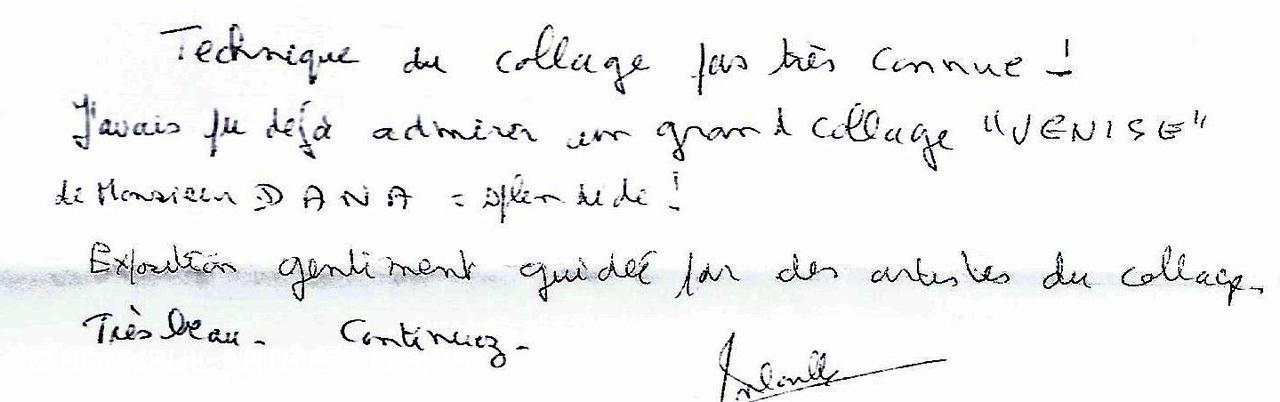 Technique du collage pas très connue !
J'avais pu déjà admirer un grand collage "VENISE"
de Monsieur DANA = splendide !
Exposition gentiment guidée par des artistes du collage.
Très beau. Continuez.